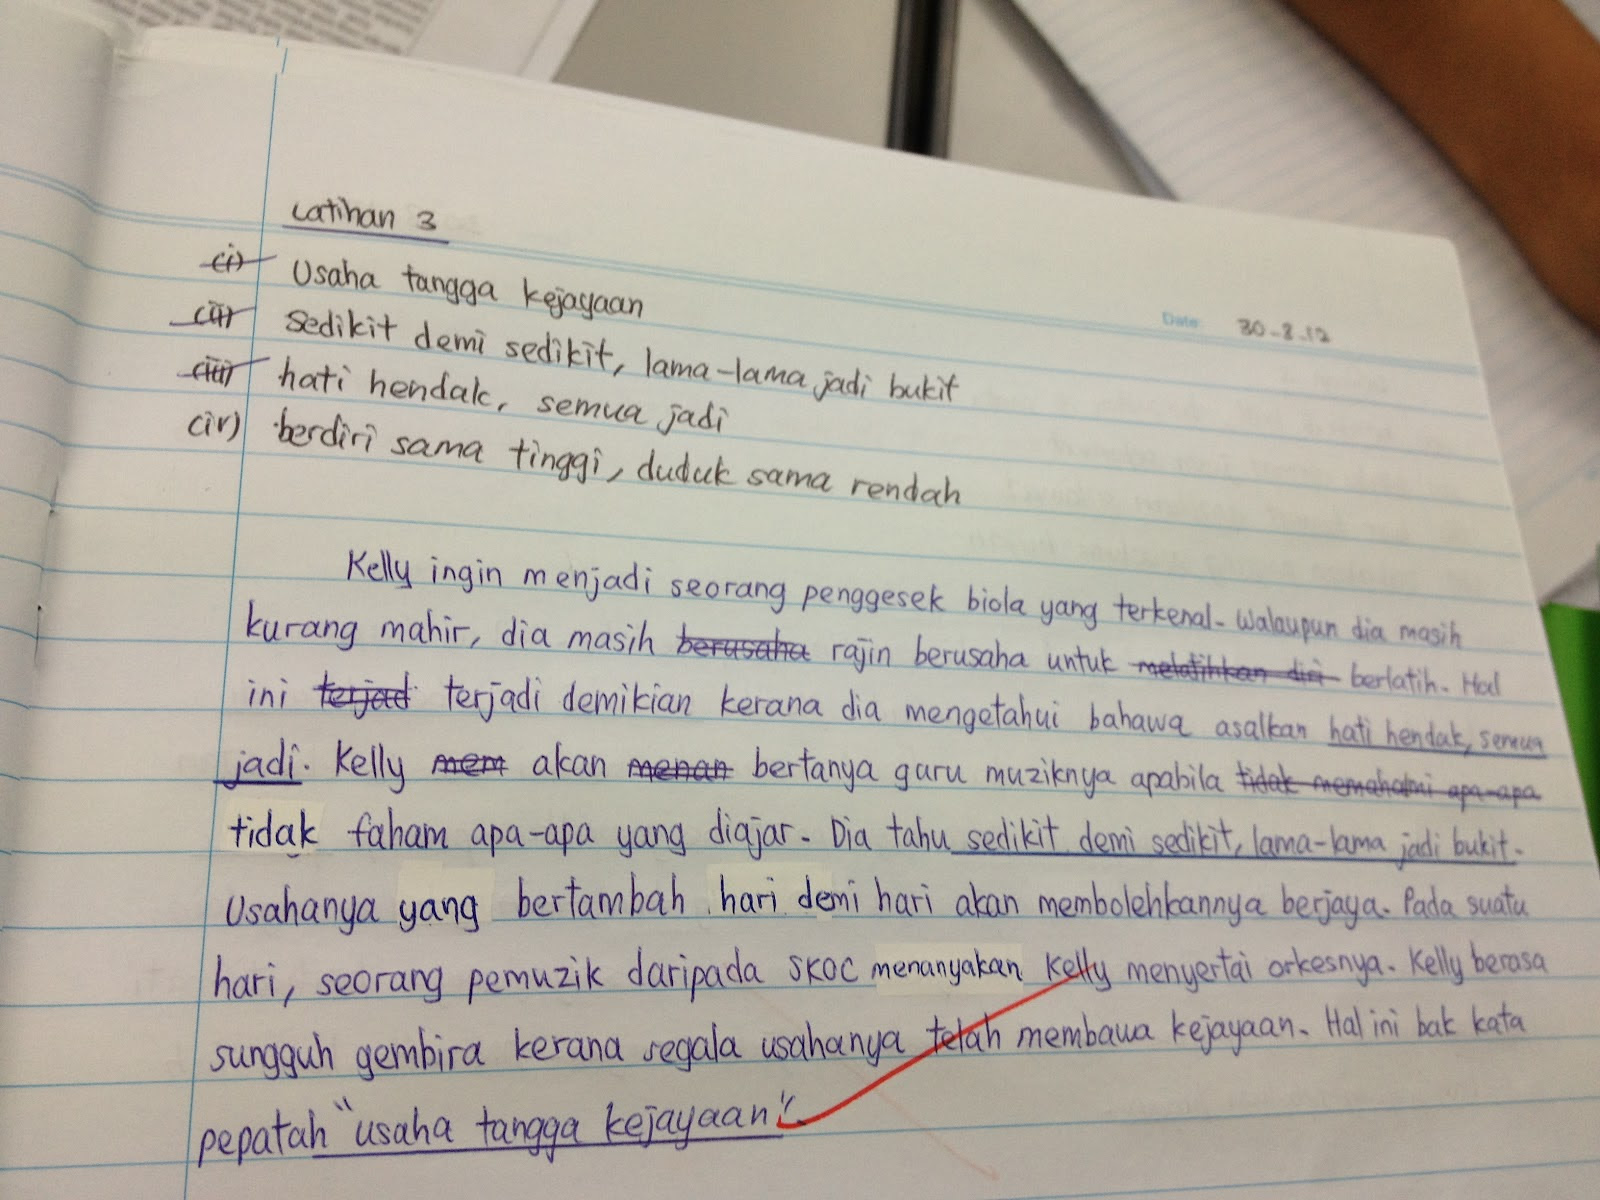 Latihan 3
(i) Usaha tangga kejayaan
Date: 30-8-12
(ii) sedikit demi sedikit, lama-lama jadi bukit
(iii) hati hendak, semua jadi
(iv) berdiri sama tinggi, duduk sama rendah
Kelly ingin menjadi seorang penggesek biola yang terkenal. Walaupun dia masih
kurang mahir, dia masih berusaha rajin berusaha untuk melatihkan diri berlatih. Hal
ini terjad terjadi demikian kerana dia mengetahui bahawa asalkan hati hendak, semua
jadi. Kelly mem akan menan bertanya guru muziknya apabila tidak memahami apa-apa
tidak faham apa-apa yang diajar. Dia tahu sedikit demi sedikit, lama-lama jadi bukit.
Usahanya yang bertambah hari demi hari akan membolehkannya berjaya. Pada suatu
hari, seorang pemuzik daripada SKOC menanyakan Kelly menyertai orkesnya. Kelly berasa
sungguh gembira kerana segala usahanya telah membawa kejayaan. Hal ini bak kata
pepatah "usaha tangga kejayaan".